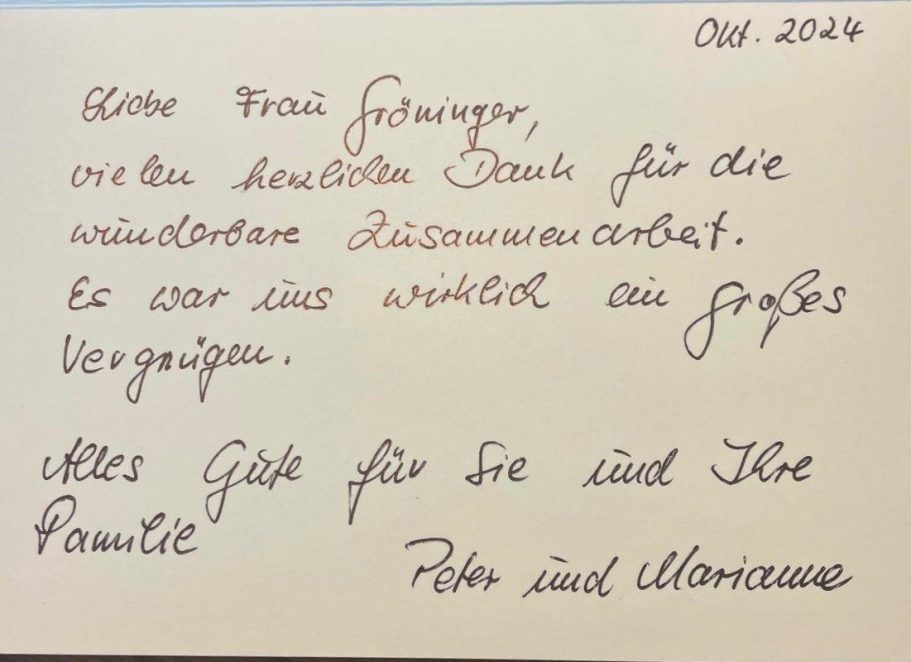 Okt. 2024
Liebe Frau Gröninger,
vielen herzlichen Dank für die
wunderbare Zusammenarbeit.
Es war uns wirklich ein großes
Vergnügen.
Alles Gute für Sie und Ihre
Familie
Peter und Marianne